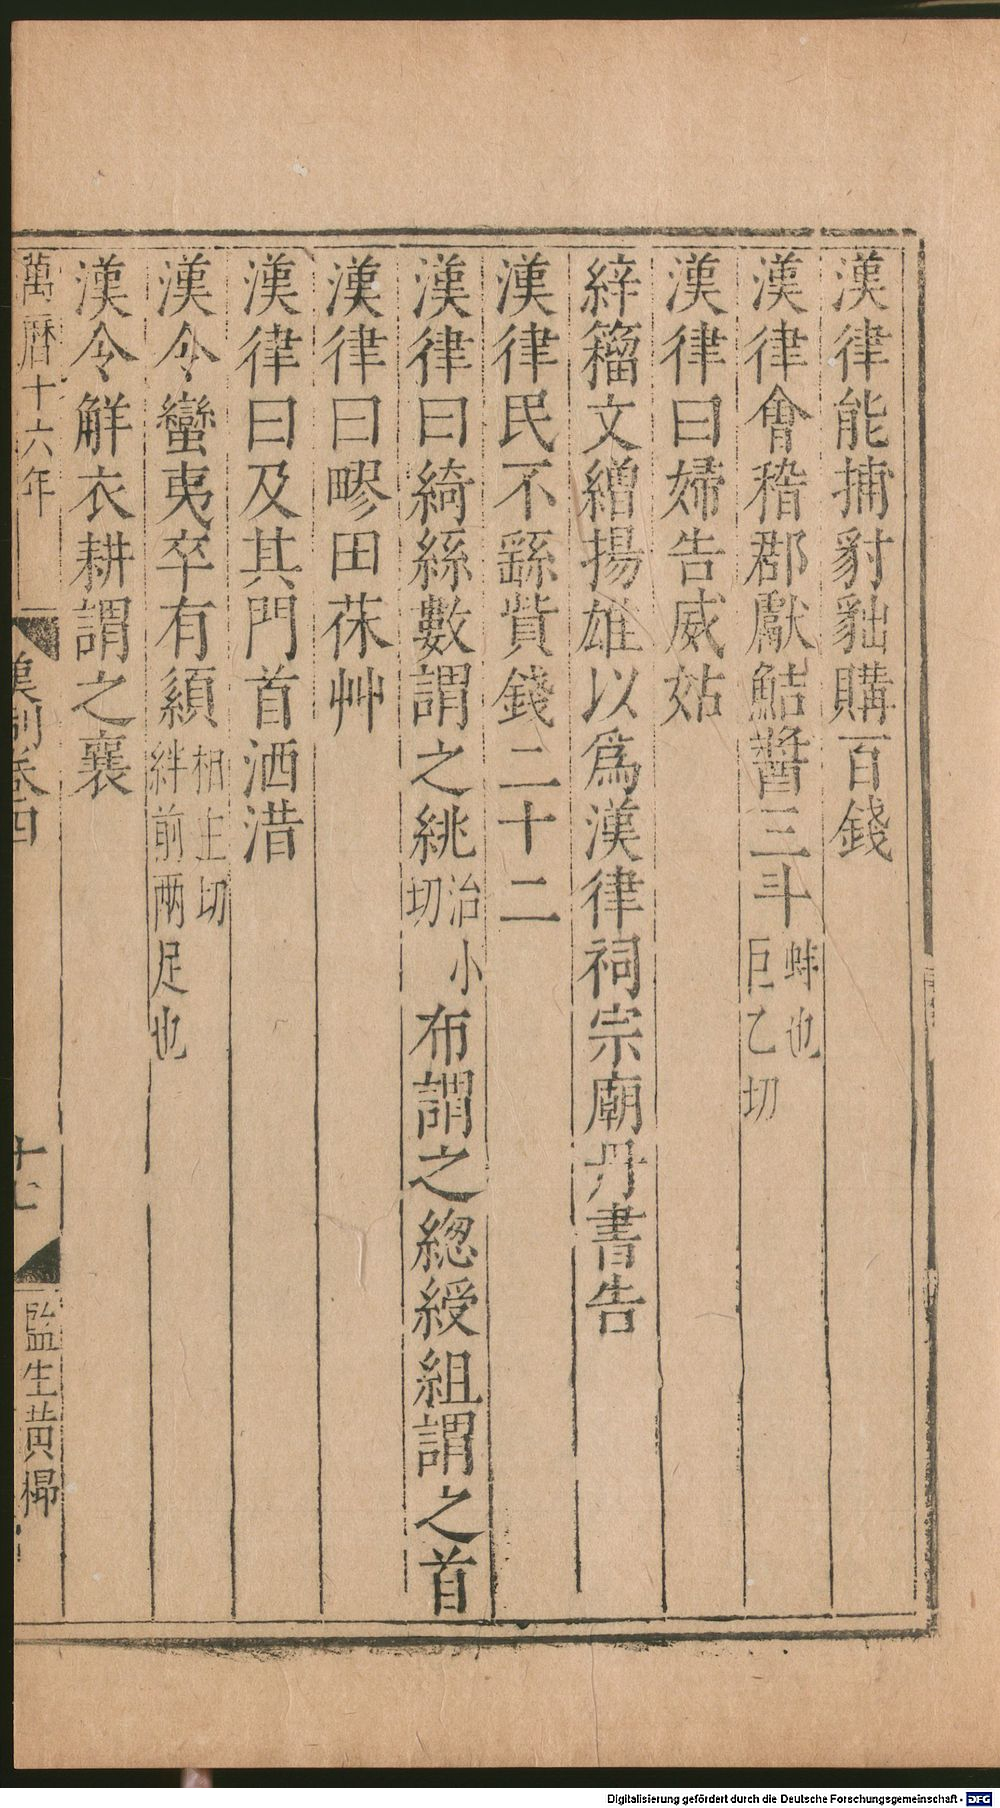 漢律能捕豺貀購百錢
漢律會稽郡獻鮚醬三斗蚌也巨乙切
漢律曰婦告威姑
縡籀文繒揚雄以爲漢律祠宗廟丹書告
漢律民不繇貲錢二十二
漢律曰綺絲數謂之絩治小切布謂之緫綬組謂之首
漢律曰疁田茠艸
漢律曰及其門首洒浩
漢令蠻夷卒有𩓣相主切絆前兩足也
漢令解衣耕謂之襄
萬曆十六年
漢制卷四
十七
監生黃
Digitalisierung gefördert durch die Deutsche Forschungsgemeinschaft - DFG